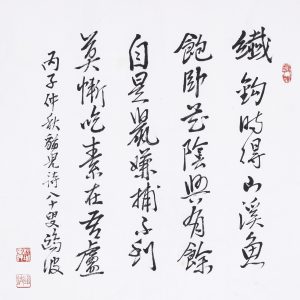 纖鉤時得山溪魚
飽臥花陰興有餘
自是鼠嫌捕不到
莫慚吃素在吾廬
丙子仲秋貓兒詩八十叟鴻波